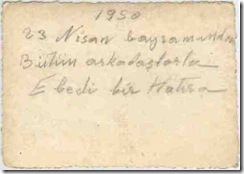 1950
23 Nisan bayramından
Bütün arkadaşlarla
Ebedi bir Hatıra